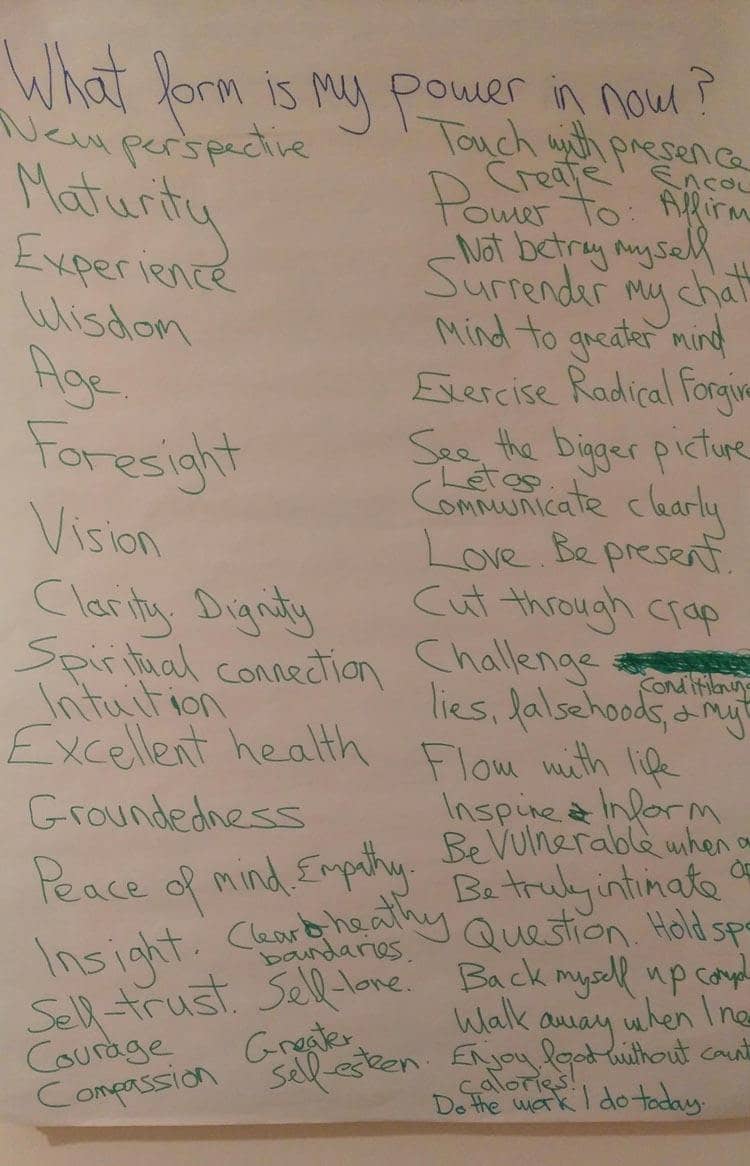 What form is my power in now?
New perspective
Maturity
Experience
Wisdom
Age.
Foresight
Vision
Clarity. Dignity
Spiritual connection
Intuition
Excellent health
Groundedness
Peace of mind. Empathy.
Insight. Clear & heathy
boundaries.
Self-trust. Self-love.
Courage Greater
Compassion self-esteen.
Touch with presence
Create Encou
Power to: Affirm
Not betray myself
Surrender my chatt
mind to greater mind
Exercise Radical Forgive
See the bigger picture
Let go.
Communicate clearly
Love. Be present.
Cut through crap
Challenge
conditioning
lies, falsehoods, & myt
Flow with life
Inspire & Inform
Be Vulnerable when
Be truly intimate
Question. Hold spa
Back myself up
Walk away when I nee
Enjoy food without count
calories!
Do the work I do today.